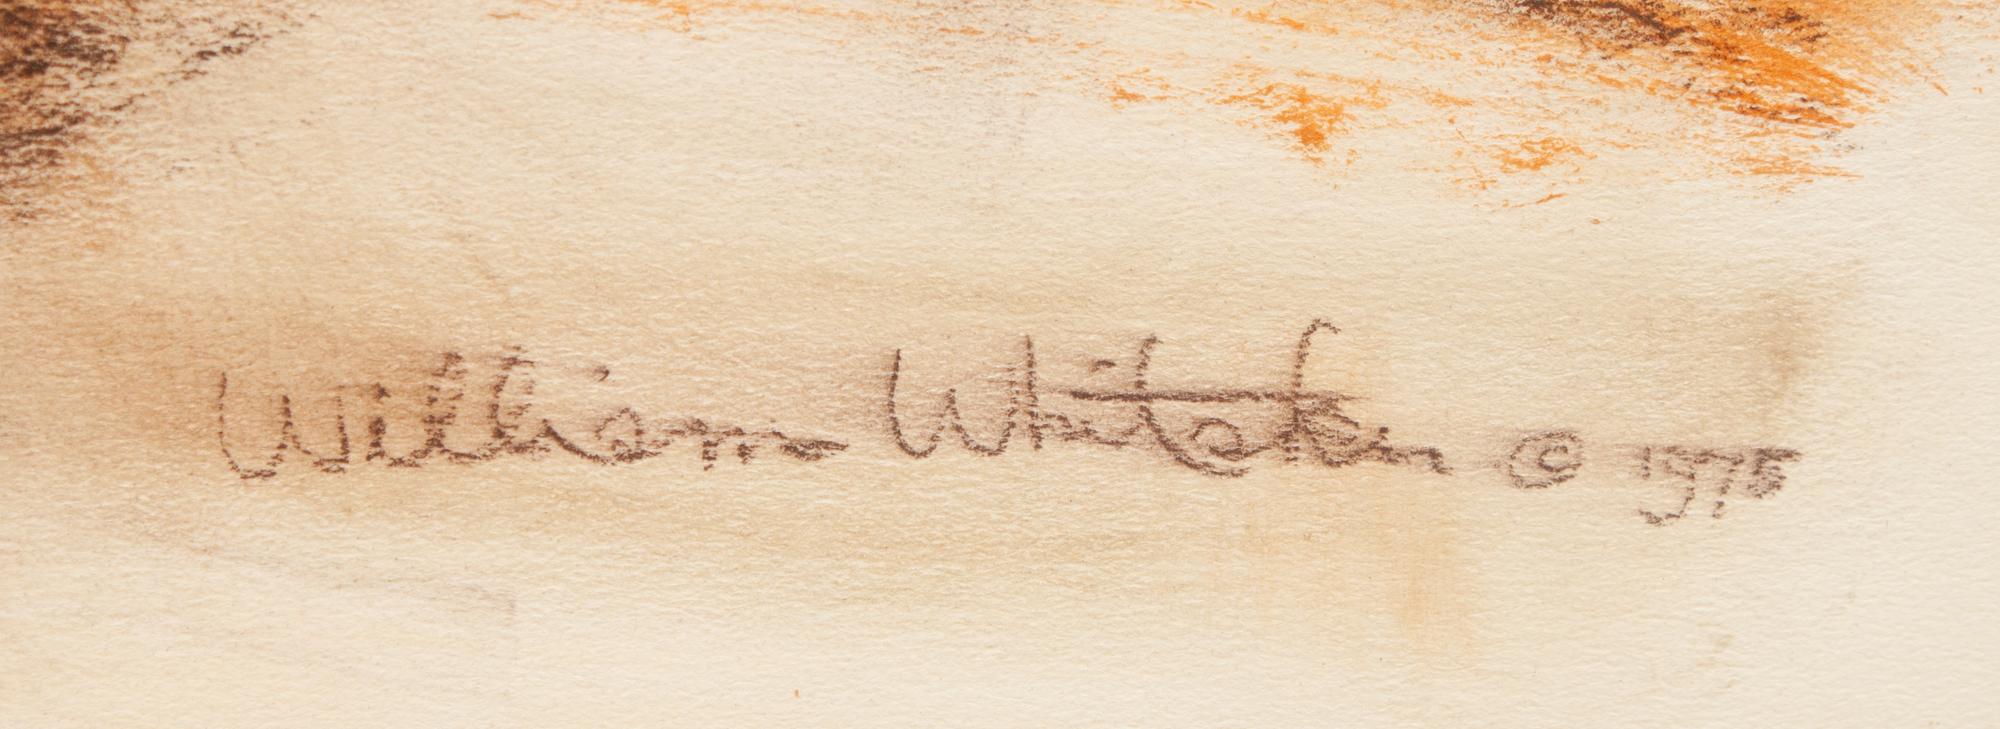 William Whitaker © 1975